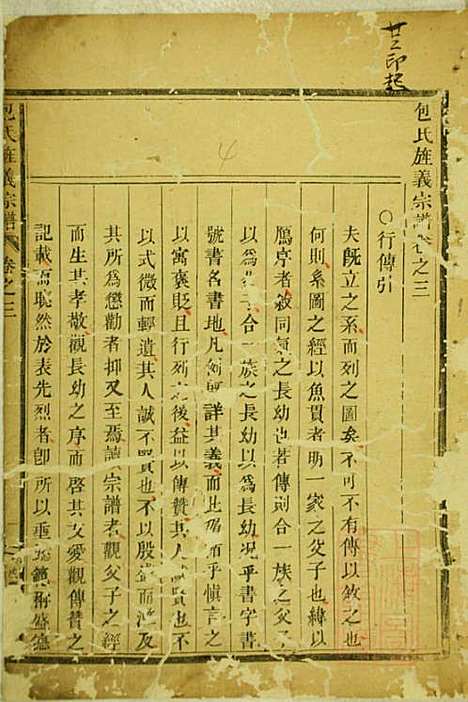 廿二印起
包氏旌義宗譜卷之三
○行傳引
夫既立之系而列之圖矣不可不有傳以敘之也
何則系圖之經以魚貫者明一家之父子也緯以
鴈序者敘同氣之長幼也若傳則合一族之父子
以為父子合一族之長幼以為長幼况乎書字書
號書名書地凡例詳其義而比乎慎言之
以寓褒貶且行列之後益以傳贊其人誠賢也不
以式微而輕遺其人誠不賢也不以殷盛而濫及
其所為懲勸者抑又至焉讀宗譜者觀父子之經
而生其孝敬觀長幼之序而啓其友愛觀傳贊之
記載而恥然於表先烈者卽所以垂範脩德
包氏旌義宗譜 卷之三
4